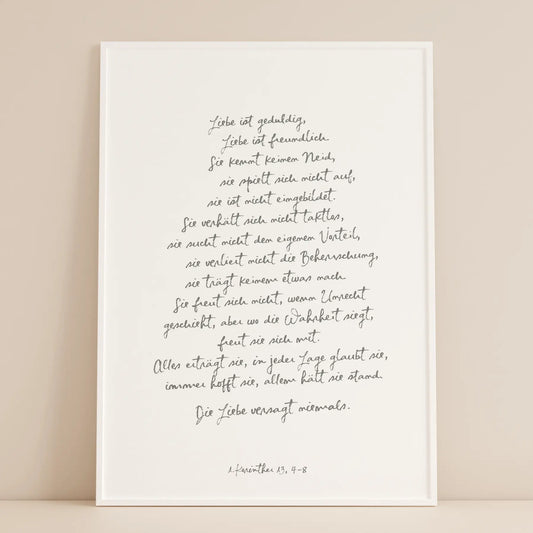 Liebe ist geduldig,
Liebe ist freundlich.
Sie kennt keinen Neid,
sie spielt sich nicht auf,
sie ist nicht eingebildet.
Sie verhält sich nicht taktlos,
sie sucht nicht den eigenen Vorteil,
sie verliert nicht die Beherrschung,
sie trägt keinem etwas nach.
Sie freut sich nicht, wenn Unrecht
geschieht, aber wo die Wahrheit siegt,
freut sie sich mit.
Alles erträgt sie, in jeder Lage glaubt sie,
immer hofft sie, allem hält sie stand.
Die Liebe versagt niemals.
1. Korinther 13, 4-8